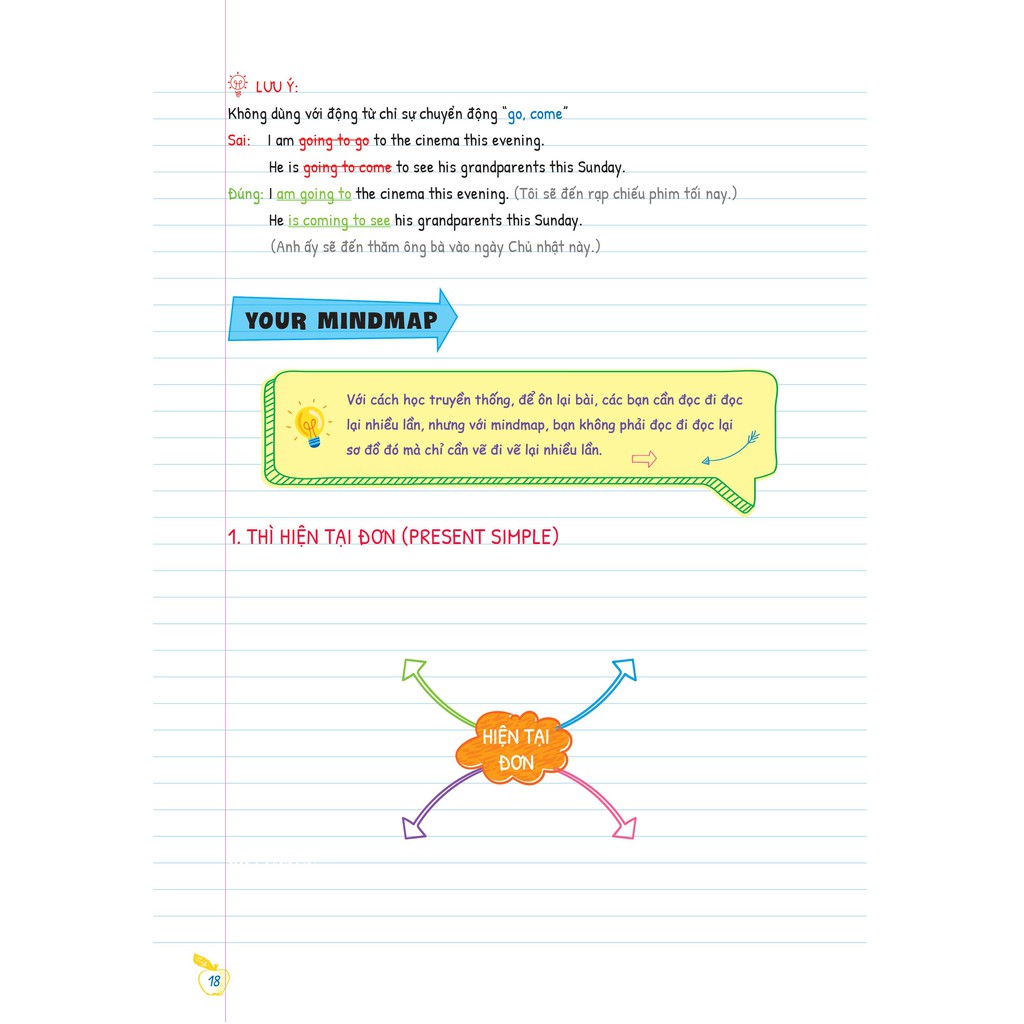 LƯU Ý:
Không dùng với động từ chỉ sự chuyển động “go, come”
Sai: I am going to go to the cinema this evening.
He is going to come to see his grandparents this Sunday.
Đúng: I am going to the cinema this evening. (Tôi sẽ đến rạp chiếu phim tối nay.)
He is coming to see his grandparents this Sunday.
(Anh ấy sẽ đến thăm ông bà vào ngày Chủ nhật này.)
YOUR MINDMAP
Với cách học truyền thống, để ôn lại bài, các bạn cần đọc đi đọc
lại nhiều lần, nhưng với mindmap, bạn không phải đọc đi đọc lại
sơ đồ đó mà chỉ cần vẽ đi vẽ lại nhiều lần.
1. THÌ HIỆN TẠI ĐƠN (PRESENT SIMPLE)
HIỆN TẠI
ĐƠN
18